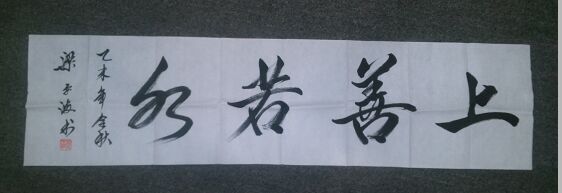 上善若水
乙未年金秋
梁子波书